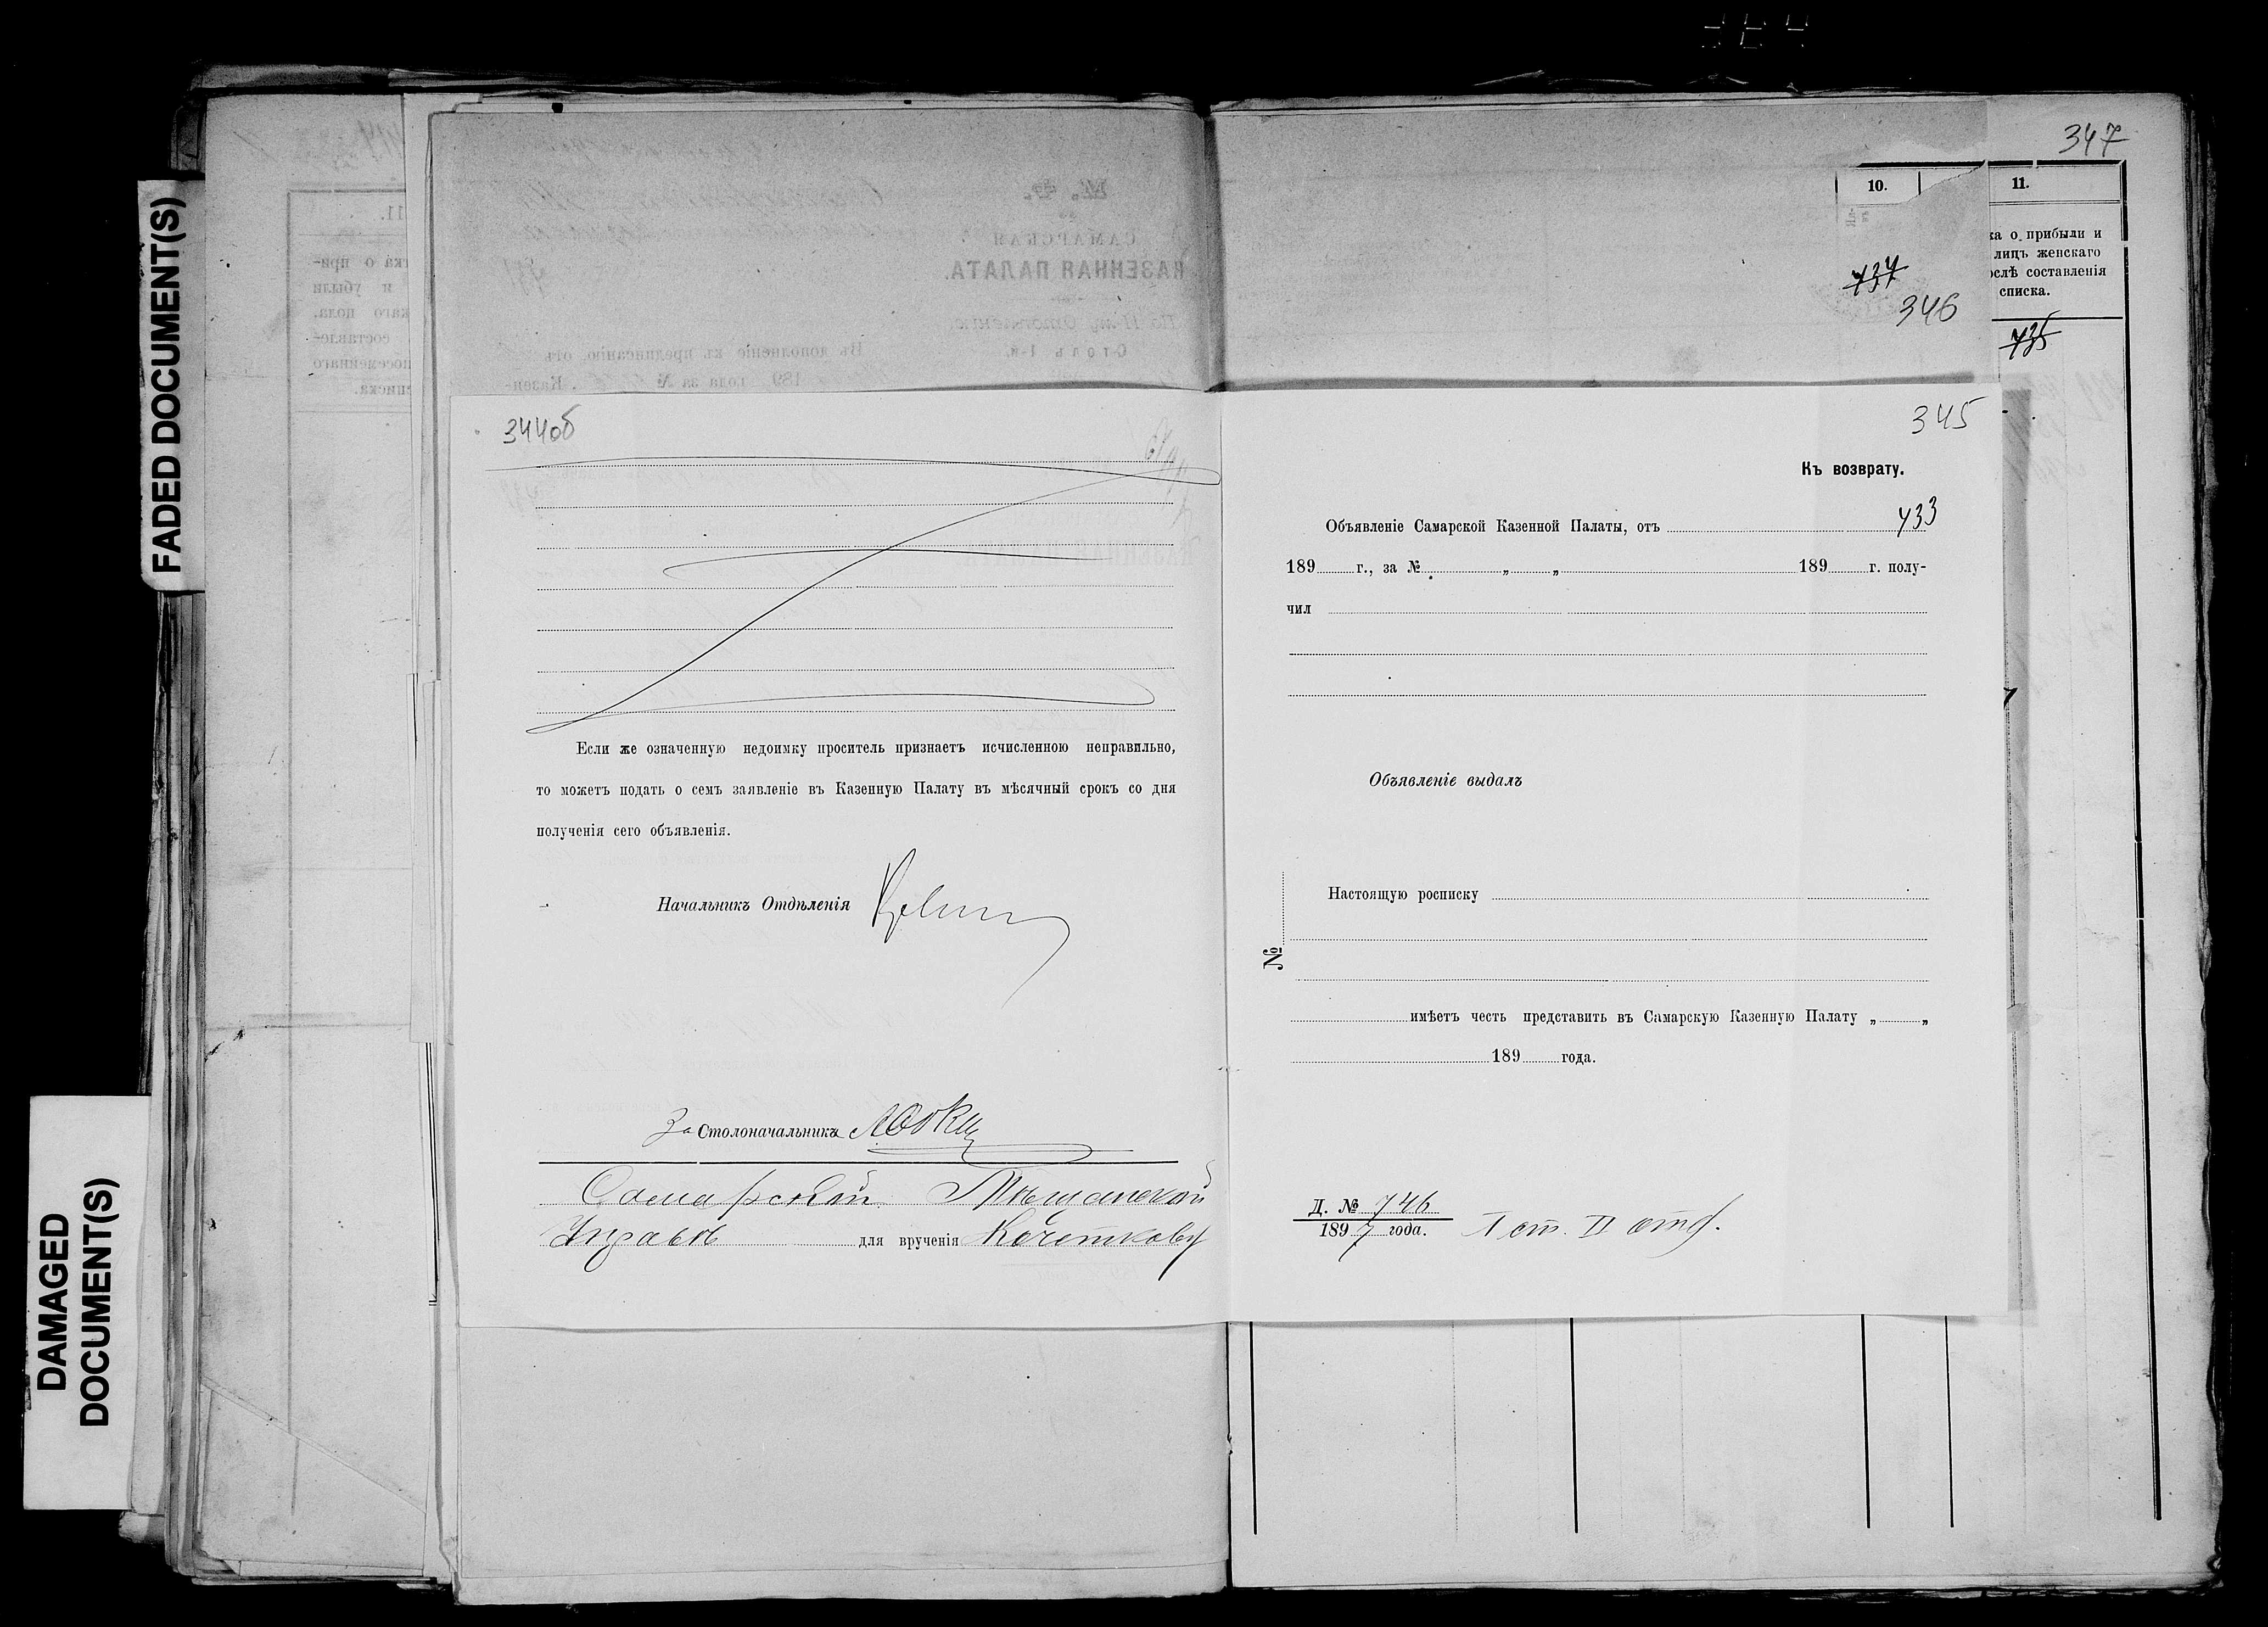 FADED DOCUMENT(S)
DAMAGED
DOCUMENT(S)
347
10.
11.
ка о прибыли и
лицъ женскаго
ослѣ составленія
списка.
737
346
735
САМАРСКАЯ
КАЗЕННАЯ ПАЛАТА.
По II-му Отдѣленію.
Столъ 1-й.
Въ дополненіе къ предписанію, отъ
189 года за № . Казен-
344об
Если же означенную недоимку проситель признаетъ исчисленною неправильно,
то можетъ подать о семъ заявленіе въ Казенную Палату въ мѣсячный срокъ со дня
полученія сего объявленія.
Начальникъ Отдѣленія
За Столоначальника
Самарской Мѣщанской
Управѣ для врученія Кочеткову
345
Къ возврату.
Объявленіе Самарской Казенной Палаты, отъ 733
189 г., за № „ „ 189 г. полу-
чил
Объявленіе выдалъ
Настоящую росписку
№
имѣетъ честь представить въ Самарскую Казенную Палату „ „
189 года.
Д. № 746
1897 года. I ст. II отд.